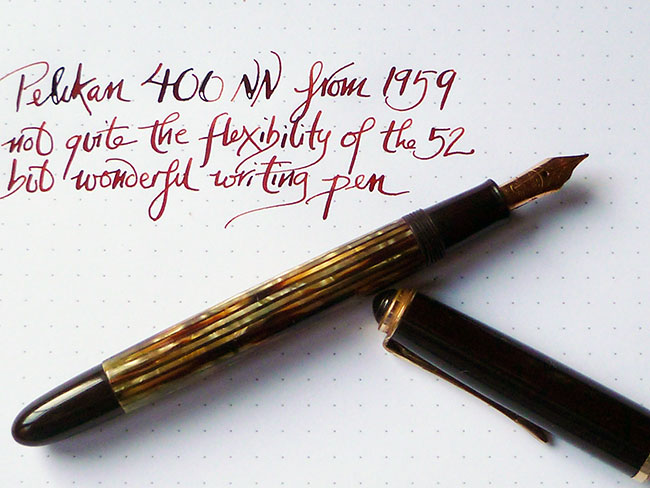 Pelikan 400 NN from 1959
not quite the flexibility of the 52
but wonderful writing pen